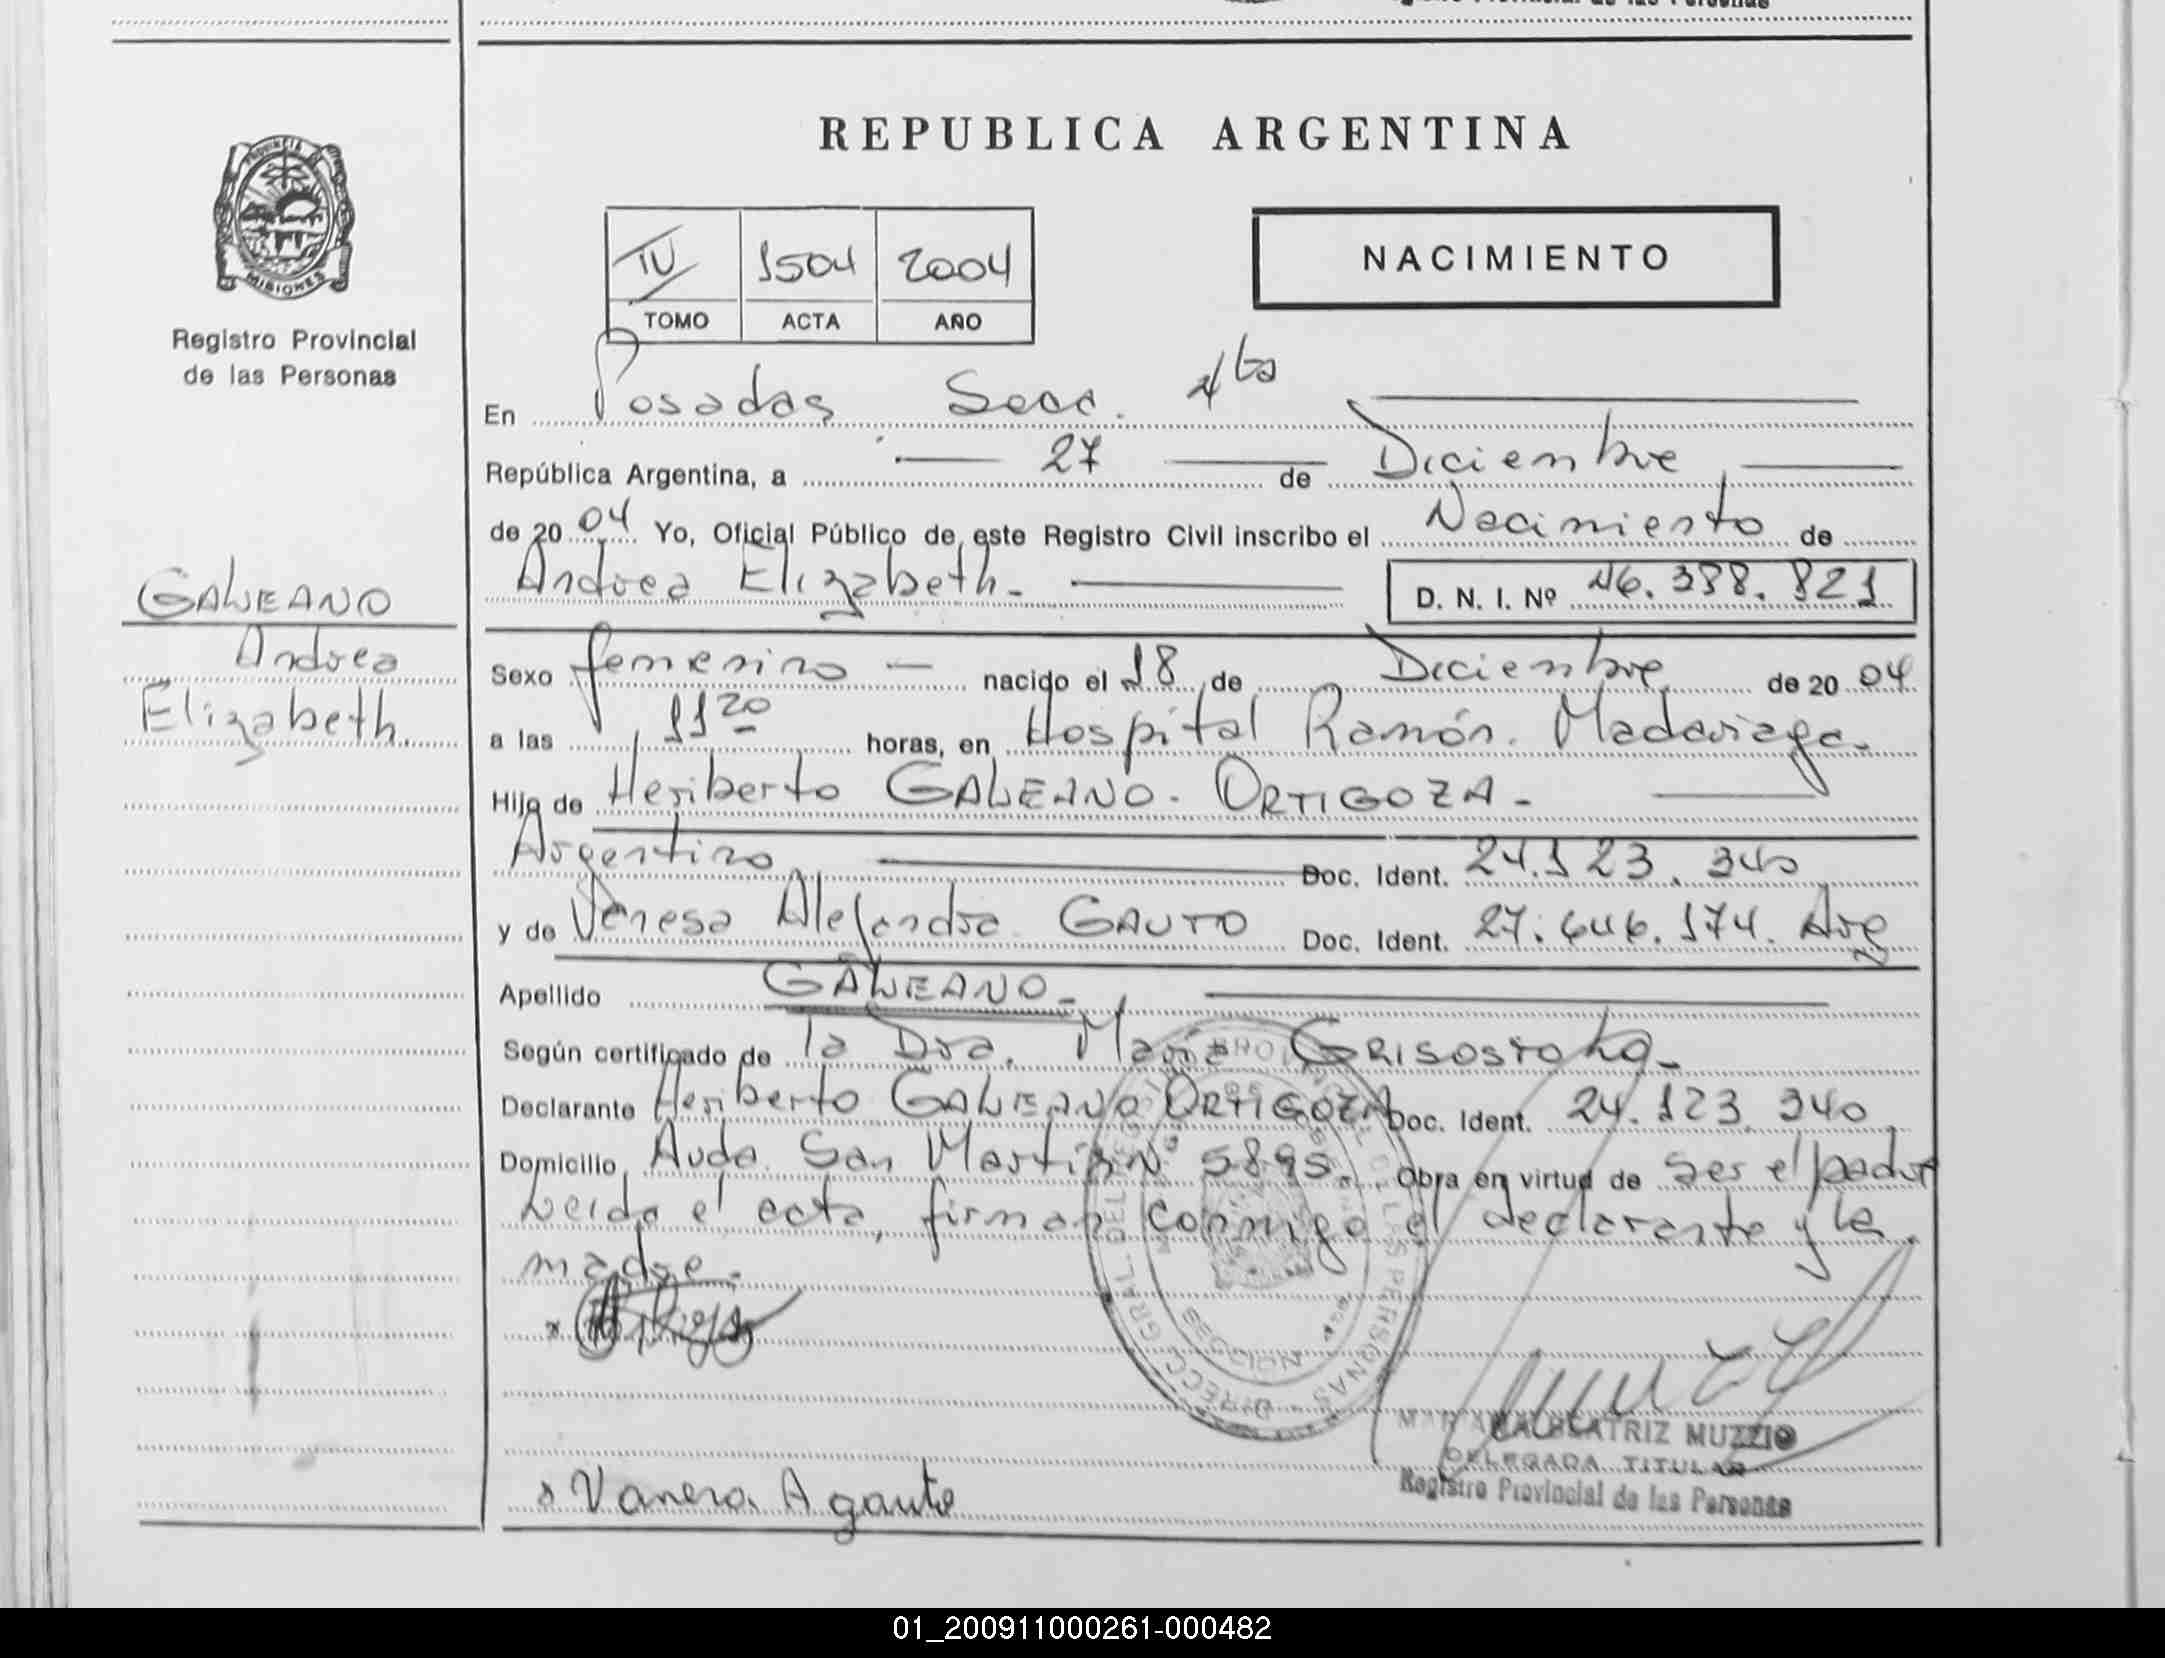 REPUBLICA ARGENTINA
NACIMIENTO
IV 1504 2004
TOMO ACTA AÑO
PROVINCIA
MISIONES
Registro Provincial
de las Personas
En Posadas Secc. 4ta
República Argentina, a 27 de Diciembre
de 2004 Yo, Oficial Público de este Registro Civil inscribo el Nacimiento de
Andrea Elizabeth.
D. N. I. Nº 46.388.821
GALEANO
Andrea
Elizabeth.
Sexo femenino nacido el 18 de Diciembre de 2004
a las 11 20 horas, en Hospital Ramón. Madariaga.
Hijo de Heriberto GALEANO. ORTIGOZA.
Argentino Doc. Ident. 24.123.340
y de Vanesa Alejandra GAUTO Doc. Ident. 27.646.174. Arg
Apellido GALEANO
Según certificado de la Dra. María
Declarante Heriberto GALEANO ORTIGOZA Doc. Ident. 24.123.340
Domicilio Avda. San Martín Nº 5895. Obra en virtud de ser el padre
Leida el acta, firman conmigo el declarante y la
madre.
Vanesa A gauto
BEATRIZ MUZZIO
DELEGADA TITULAR
Registro Provincial de las Personas
01_200911000261-000482